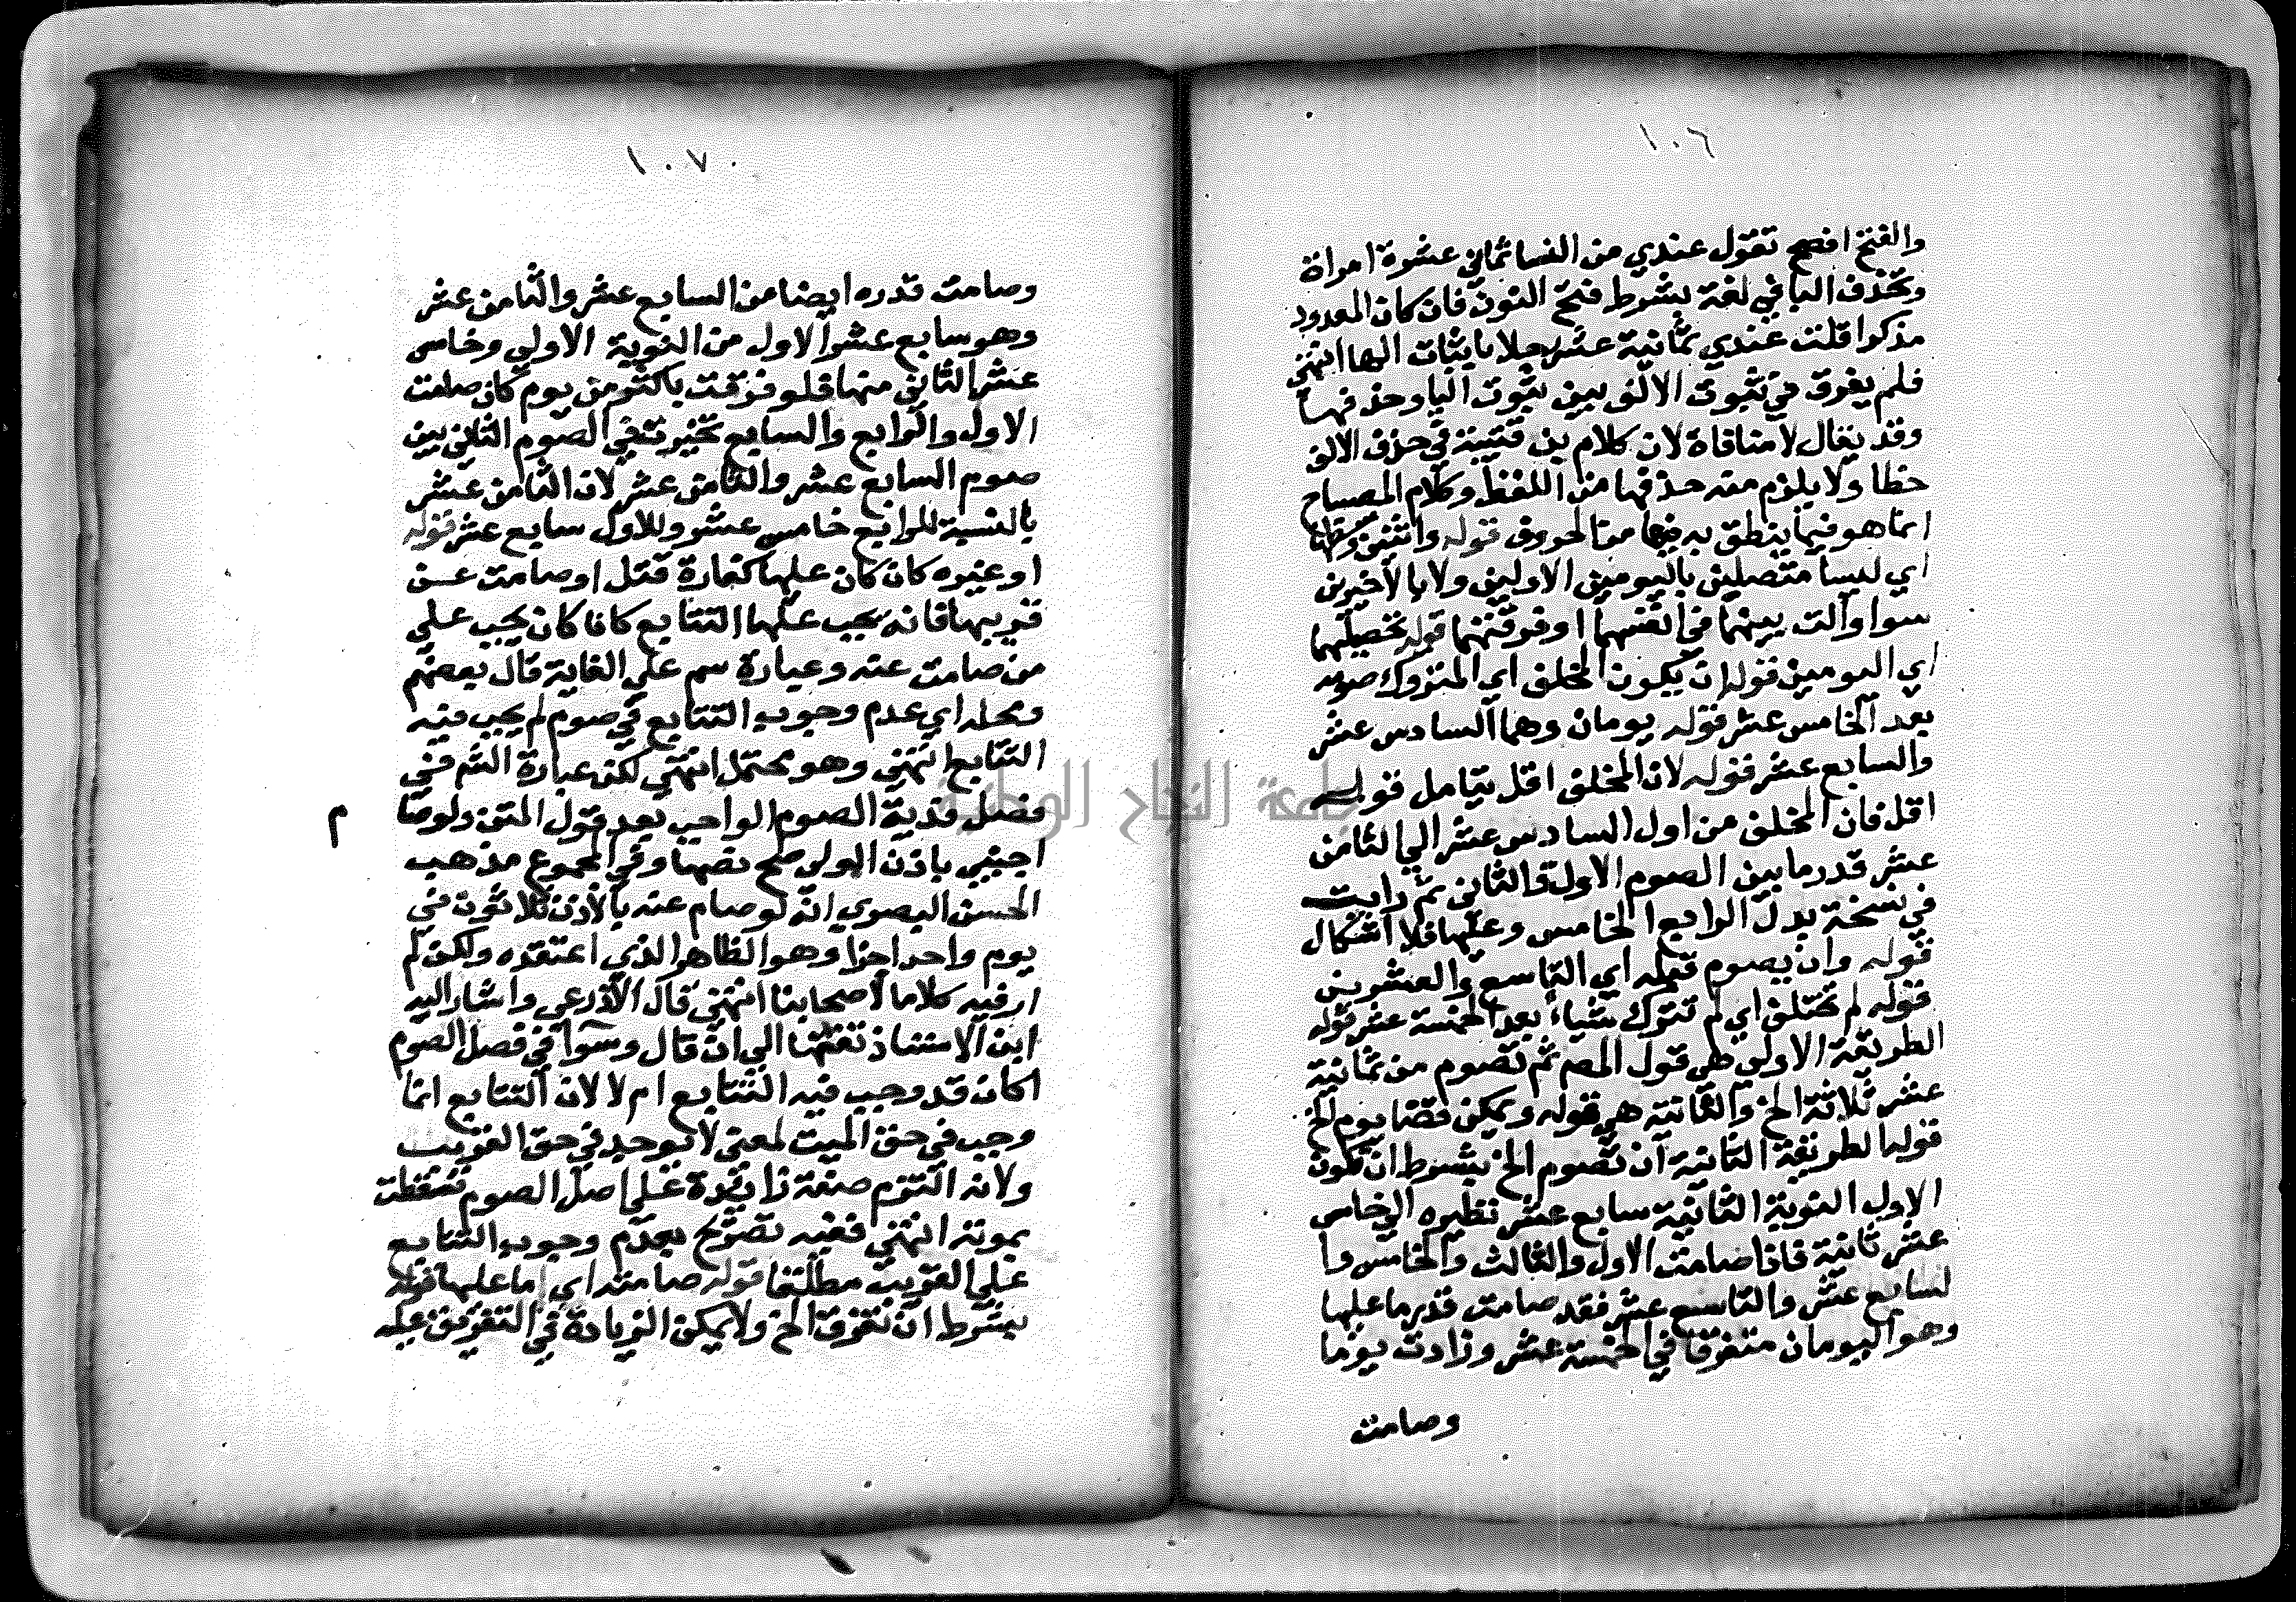 ١٠٦
والفتح افصح تقول عندي من النسا ثماني عشرة امراة
وتحذف اليا في لغة بشرط فتح النون فان كان المعدود
مذكرا قلت عندي ثمانية عشر رجلا باثبات الها انتهى
فلم يفرق في ثبوت الالف بين ثبوت اليا وحذفها
وقد يقال لا منافاة لان كلام بن قتيبة في حذف الالف
خطا ولا يلزم منه حذفها من اللفظ وكلام المصباح
انما هو فيما ينطق به فيها من الحروف قوله واثنين
اي ليسا متصلين باليومين الاولين ولا بالاخيرين
سوا والت بينهما في انفسهما او فرقتهما قوله تحصيلهما
اي اليومين قوله ان يكون المخلف اي المتروك صومه
بعد الخامس عشر قوله يومان وهما السادس عشر
والسابع عشر قوله لان المخلف اقل يتامل قوله
اقل فان المخلف من اول السادس عشر الي الثامن
عشر قدر ما بين الصوم الاول والثاني ثم رايت
في نسخة بدل الرابع الخامس وعليها فلا اشكال
قوله وان يصوم قبله اي التاسع والعشرين
قوله لم تختلف اي لم تترك شياء بعد الخمسة عشر قوله
الطريقة الاولي هي قول المص ثم تصوم من ثمانية
عشر ثلاثة الخ والثانية هي قوله ويمكن قضا يوم الخ
قوله الطريقة الثانية ان تصوم الخ بشرط ان تكون
الاول النوبة الثانية سابع عشر نظيره الي خامس
عشر ثانية فاذا صامت الاول والثالث والخامس وا
لسابع عشر والتاسع عشر فقد صامت قدر ما عليها
وهو اليومان متفرقا في الخمسة عشر وزادت يوما
وصامت
١٠٧
وصامت قدره ايضا من السابع عشر والثامن عشر
وهو سابع عشر الاول من النوبة الاولي وخامس
عشر الثاني منها فلو فرقت باكثر من يوم كان صامت
الاول والرابع والسابع تخيرت في الصوم الثاني بين
صوم السابع عشر والثامن عشر لان الثامن عشر
بالنسبة للرابع خامس عشر وللاول سابع عشر قوله
او غيره كان كان عليها كفارة قتل او صامت عن
قريبها فانه يجب عليها التتابع كما كان يجب علي
من صامت عنه وعبارة سم علي الغاية قال بعضهم
ومحله اي عدم وجوب التتابع في صوم لم يجب فيه
التتابع انتهى وهو محتمل انتهى لكن عبارة الشم في
فصل فدية الصوم الواجب بعد قول المتن ولو صا
م
اجنبي باذن الولي صح نصها وفي المجموع مذهب
الحسن البصري انه لو صام عنه بالاذن ثلاثون في
يوم واحد اجزا وهو الظاهر الذي اعتقده ولكن لم
ار فيه كلاما لاصحابنا انتهى قال الاذرعي واشار اليه
ابن الاستاذ تفقها الي ان قال وسوا في فصل الصوم
اكان قد وجب فيه التتابع ام لا لان التتابع انما
وجب في حق الميت لمعني لا يوجد في حق القريب
ولانه التزم صفة زايدة علي اصل الصوم فسقطت
بموته انتهى ففيه تصريح بعدم وجوب التتابع
علي القريب مطلقا قوله صامته اي ما عليها قوله
بشرط ان تفرق الخ ولا يمكن الزيادة في التفريق عليه